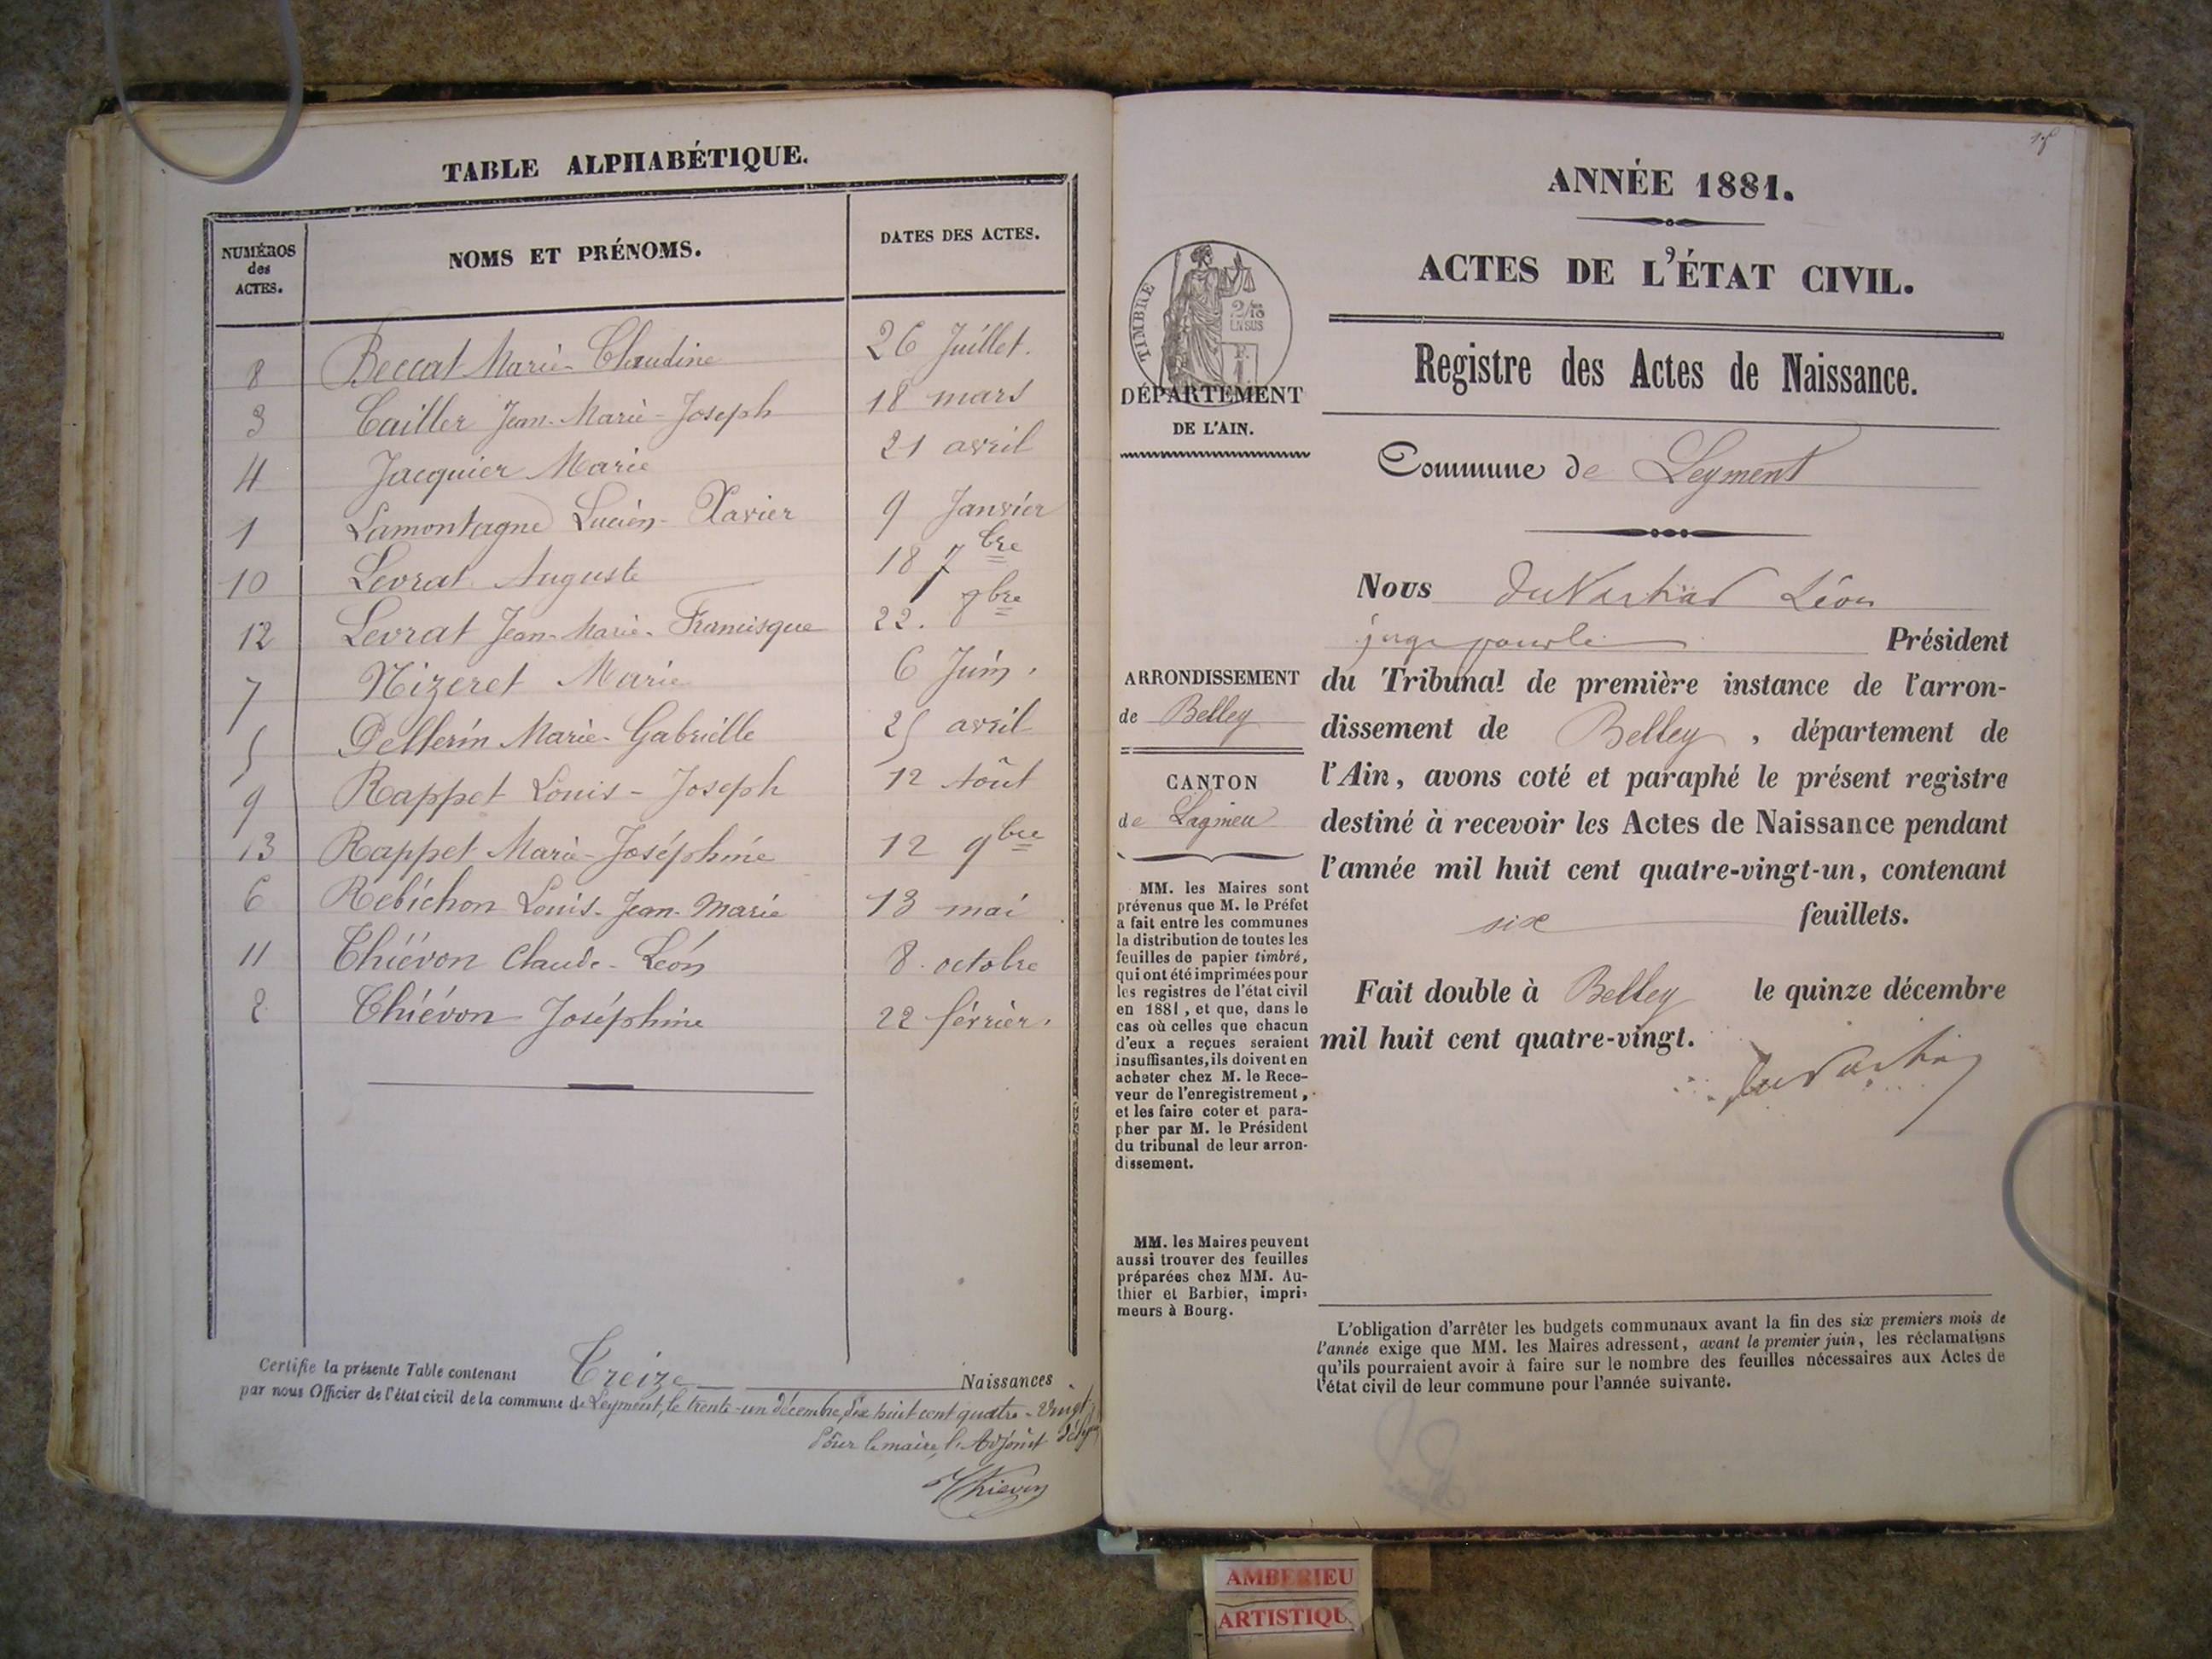 TABLE ALPHABÉTIQUE.
NUMÉROS des ACTES. NOMS ET PRÉNOMS. DATES DES ACTES.
8 Beccat Marie-Claudine 26 Juillet.
3 Cailler Jean-Marie-Joseph 18 mars
4 Jacquier Marie 21 avril
1 Lamontagne Lucien-Xavier 9 Janvier
10 Levrat Auguste 18 7bre
12 Levrat Jean-Marie-Francisque 22. 8bre
7 Nizeret Marie 6 Juin.
5 Pellerin Marie-Gabrielle 25 avril
9 Rappet Louis-Joseph 12 Aôut
13 Rappet Marie-Joséphine 12 9bre
6 Rebichon Louis-Jean-Marie 13 mai
11 Thiévon Claude-Léon 8 octobre
2 Thiévon Joséphine 22 février.
Certifie la présente Table contenant Treize Naissances
par nous Officier de l'état civil de la commune de Leyment, le trente-un décembre, dix huit cent quatre-vingt
Pour le maire, l'Adjoint
Thievon
ANNÉE 1881.
ACTES DE L'ÉTAT CIVIL.
Registre des Actes de Naissance.
Commune de Leyment
TIMBRE
2/10
EN SUS
DÉPARTEMENT
DE L'AIN.
ARRONDISSEMENT
de Belley
CANTON
de Lagnieu
MM. les Maires sont
prévenus que M. le Préfet
a fait entre les communes
la distribution de toutes les
feuilles de papier timbré,
qui ont été imprimées pour
les registres de l'état civil
en 1881, et que, dans le
cas où celles que chacun
d'eux a reçues seraient
insuffisantes, ils doivent en
acheter chez M. le Rece-
veur de l'enregistrement,
et les faire coter et para-
pher par M. le Président
du tribunal de leur arron-
dissement.
MM. les Maires peuvent
aussi trouver des feuilles
préparées chez MM. Au-
thier et Barbier, impri-
meurs à Bourg.
Nous Léon
juge pour le Président
du Tribunal de première instance de l'arron-
dissement de Belley, département de
l'Ain, avons coté et paraphé le présent registre
destiné à recevoir les Actes de Naissance pendant
l'année mil huit cent quatre-vingt-un, contenant
six feuillets.
Fait double à Belley le quinze décembre
mil huit cent quatre-vingt.
L'obligation d'arrêter les budgets communaux avant la fin des six premiers mois de
l'année exige que MM. les Maires adressent, avant le premier juin, les réclamations
qu'ils pourraient avoir à faire sur le nombre des feuilles nécessaires aux Actes de
l'état civil de leur commune pour l'année suivante.
AMBERIEU
ARTISTIQU